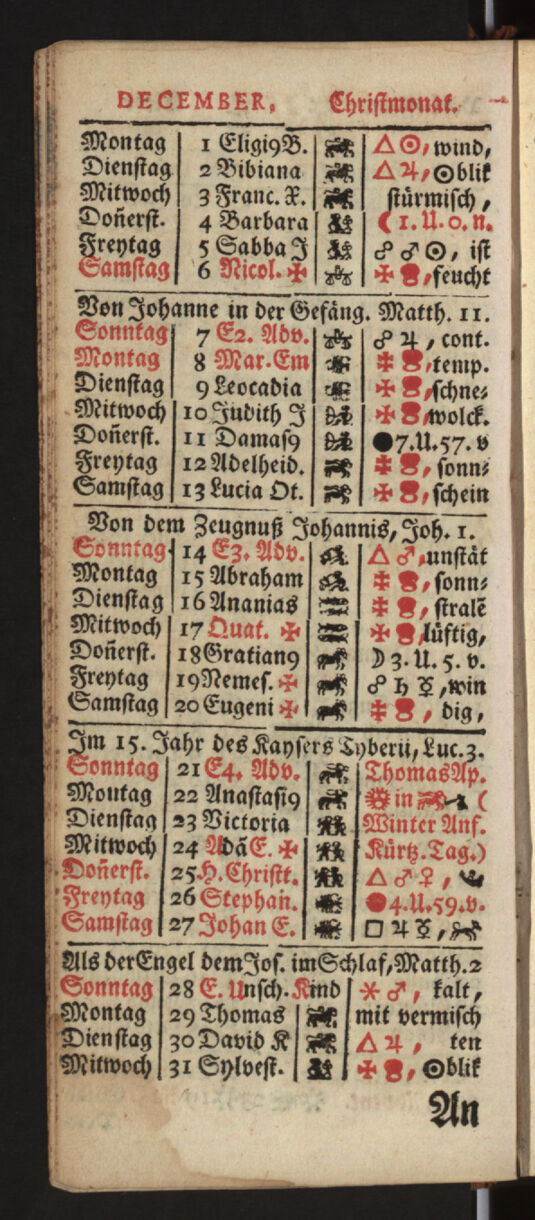 DECEMBER, Christmonat.
Montag 1 Eligi9B. △☉, wind,
Dienstag 2 Bibiana △♃, ☉blik
Mitwoch 3 Franc. X. stürmisch,
Doñerst. 4 Barbara ☾1.U.0.n.
Freytag 5 Sabba J ☍♂☉, ist
Samstag 6 Nicol. ✠ ✠, feucht
Von Johanne in der Gefäng. Matth. 11.
Sonntag 7 E2. Adv. ☍♃, cont.
Montag 8 Mar. Em ✠, temp.
Dienstag 9 Leocadia ✠, schne⸗
Mitwoch 10 Judith J ✠, wolck.
Doñerst. 11 Damas9 ●7.U.57.v
Freytag 12 Adelheid. ✠, sonn⸗
Samstag 13 Lucia Ot. ✠, schein
Von dem Zeugnuß Johannis, Joh. 1.
Sonntag 14 E3. Adv. △♂, unstät
Montag 15 Abraham ✠, sonn⸗
Dienstag 16 Ananias ✠, stralē
Mitwoch 17 Quat. ✠ ✠, lüftig,
Doñerst. 18 Gratian9 ☽3.U.5.v.
Freytag 19 Nemes. ✠ ☍♄☿, win
Samstag 20 Eugeni ✠ ✠, dig,
Im 15. Jahr des Kaysers Tyberii, Luc. 3.
Sonntag 21 E4. Adv. Thomas Ap.
Moutag 22 Anastasi9 ☼ in (
Dienstag 23 Victoria Winter Anf.
Mitwoch 24 Adã E. ✠ Kürtz. Tag.)
Doñerst. 25 H. Christt. △♂♀,
Freytag 26 Stephañ. ●4.U.59.v.
Samstag 27 Johan E. □♃☿,
Als der Engel dem Jos. im Schlaf, Matth. 2
Sonntag 28 E. Unsch. Kind ⚹♂, kalt,
Montag 29 Thomas mit vermisch
Dienstag 30 David K △♃, ten
Mitwoch 31 Sylvest. ✠, ☉blik
An